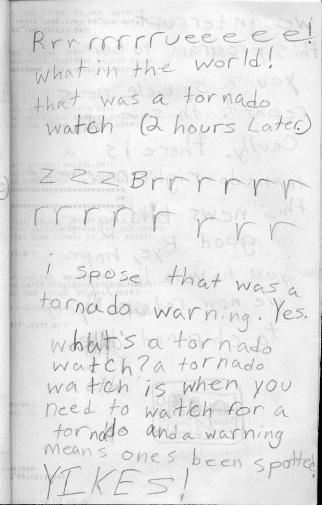 Rrrrrrrrrueeeeee!
what in the world!
that was a tornado
watch (2 hours Later.)
Z Z Z Brrrrrrr
rrrrrrrrr
i spose that was a
tornado warning. Yes.
what's a tornado
watch? a tornado
watch is when you
need to watch for a
tornado and a warning
means ones been spotted!
YIKES!